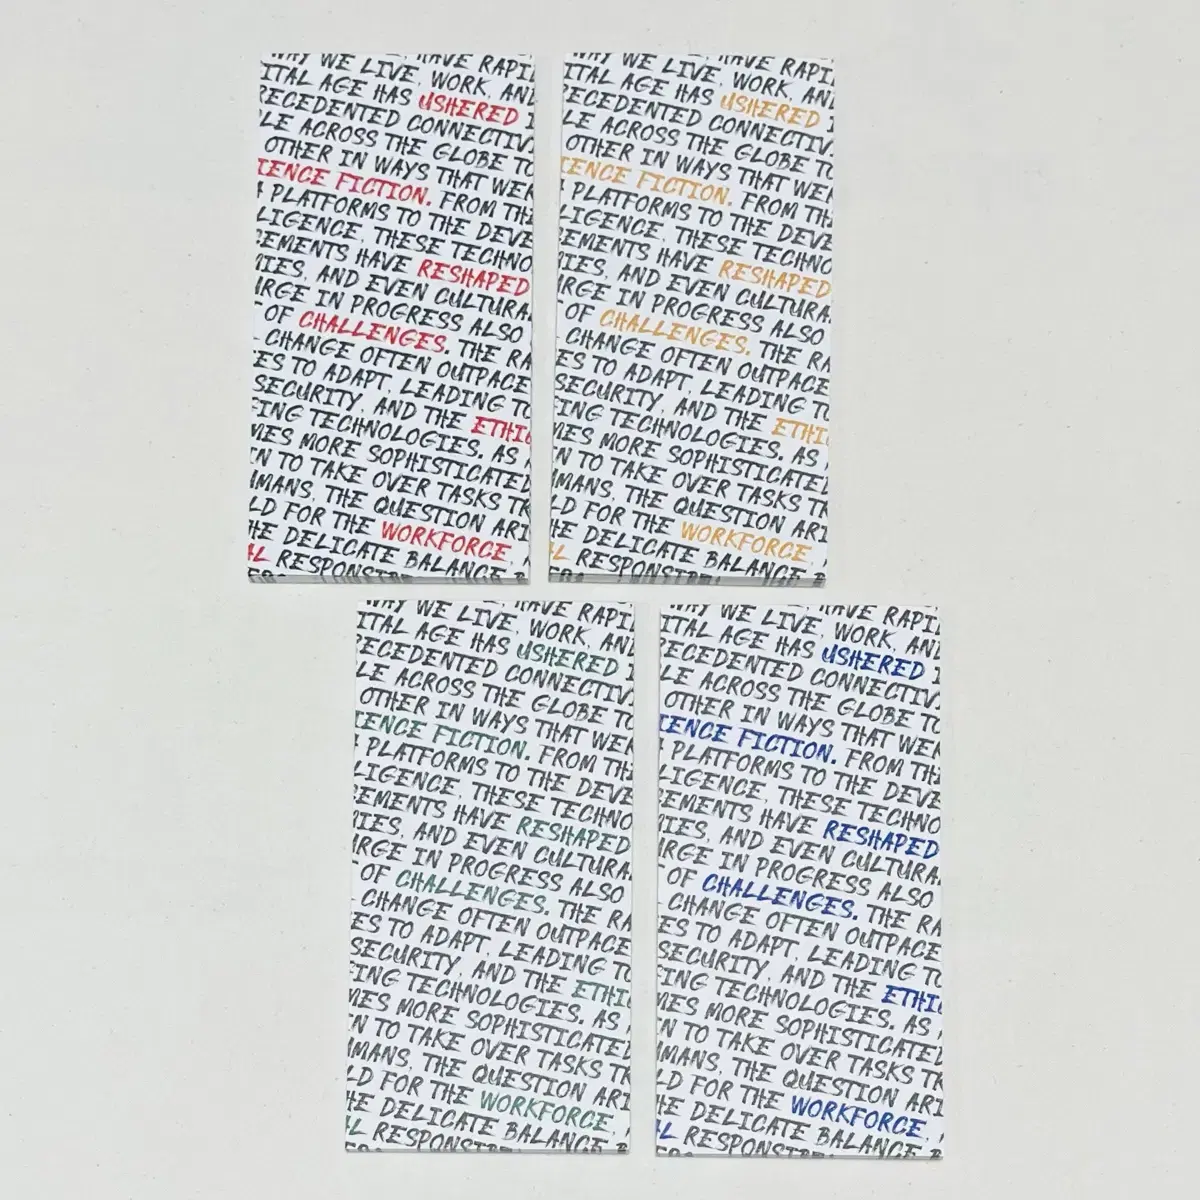 HAVE RAPI
WAY WE LIVE, WORK, AND
ITAL AGE HAS USHERED
RECEDENTED CONNECTIV
LE ACROSS THE GLOBE TO
OTHER IN WAYS THAT WER
IENCE FICTION. FROM THE
PLATFORMS TO THE DEVE
LIGENCE, THESE TECHNO
EMENTS HAVE RESHAPED
IES, AND EVEN CULTURA
URGE IN PROGRESS ALSO
OF CHALLENGES. THE RA
CHANGE OFTEN OUTPACE
ES TO ADAPT, LEADING TO
SECURITY, AND THE ETHI
ING TECHNOLOGIES. AS
MES MORE SOPHISTICATED
N TO TAKE OVER TASKS TR
MANS, THE QUESTION ARI
LD FOR THE WORKFORCE,
HE DELICATE BALANCE
AL RESPONSIBI
HAVE RAPI
WAY WE LIVE, WORK, AN
ITAL AGE HAS USHERED
RECEDENTED CONNECTIV
LE ACROSS THE GLOBE TO
OTHER IN WAYS THAT WER
IENCE FICTION. FROM THE
PLATFORMS TO THE DEVE
LIGENCE, THESE TECHNO
EMENTS HAVE RESHAPED
IES, AND EVEN CULTURA
URGE IN PROGRESS ALSO
OF CHALLENGES. THE RA
CHANGE OFTEN OUTPACE
ES TO ADAPT, LEADING TO
SECURITY, AND THE ETHI
ING TECHNOLOGIES. AS
MES MORE SOPHISTICATED
N TO TAKE OVER TASKS TR
MANS, THE QUESTION ARI
LD FOR THE WORKFORCE,
HE DELICATE BALANCE
AL RESPONSIBI
HAVE RAPI
WAY WE LIVE, WORK, AND
ITAL AGE HAS USHERED
RECEDENTED CONNECTIV
LE ACROSS THE GLOBE TO
OTHER IN WAYS THAT WER
IENCE FICTION. FROM THE
PLATFORMS TO THE DEVE
LIGENCE, THESE TECHNO
EMENTS HAVE RESHAPED
IES, AND EVEN CULTURA
URGE IN PROGRESS ALSO
OF CHALLENGES. THE RA
CHANGE OFTEN OUTPACE
ES TO ADAPT, LEADING TO
SECURITY, AND THE ETHI
ING TECHNOLOGIES. AS
MES MORE SOPHISTICATED
N TO TAKE OVER TASKS TR
MANS, THE QUESTION ARI
LD FOR THE WORKFORCE,
HE DELICATE BALANCE
AL RESPONSIBI
HAVE RAPI
WAY WE LIVE, WORK, AND
ITAL AGE HAS USHERED
RECEDENTED CONNECTIV
LE ACROSS THE GLOBE TO
OTHER IN WAYS THAT WER
IENCE FICTION. FROM THE
PLATFORMS TO THE DEVE
LIGENCE, THESE TECHNO
EMENTS HAVE RESHAPED
IES, AND EVEN CULTURA
URGE IN PROGRESS ALSO
OF CHALLENGES. THE RA
CHANGE OFTEN OUTPACE
ES TO ADAPT, LEADING TO
SECURITY, AND THE ETHI
ING TECHNOLOGIES. AS
MES MORE SOPHISTICATED
N TO TAKE OVER TASKS TR
MANS, THE QUESTION ARI
LD FOR THE WORKFORCE,
HE DELICATE BALANCE
AL RESPONSIBI